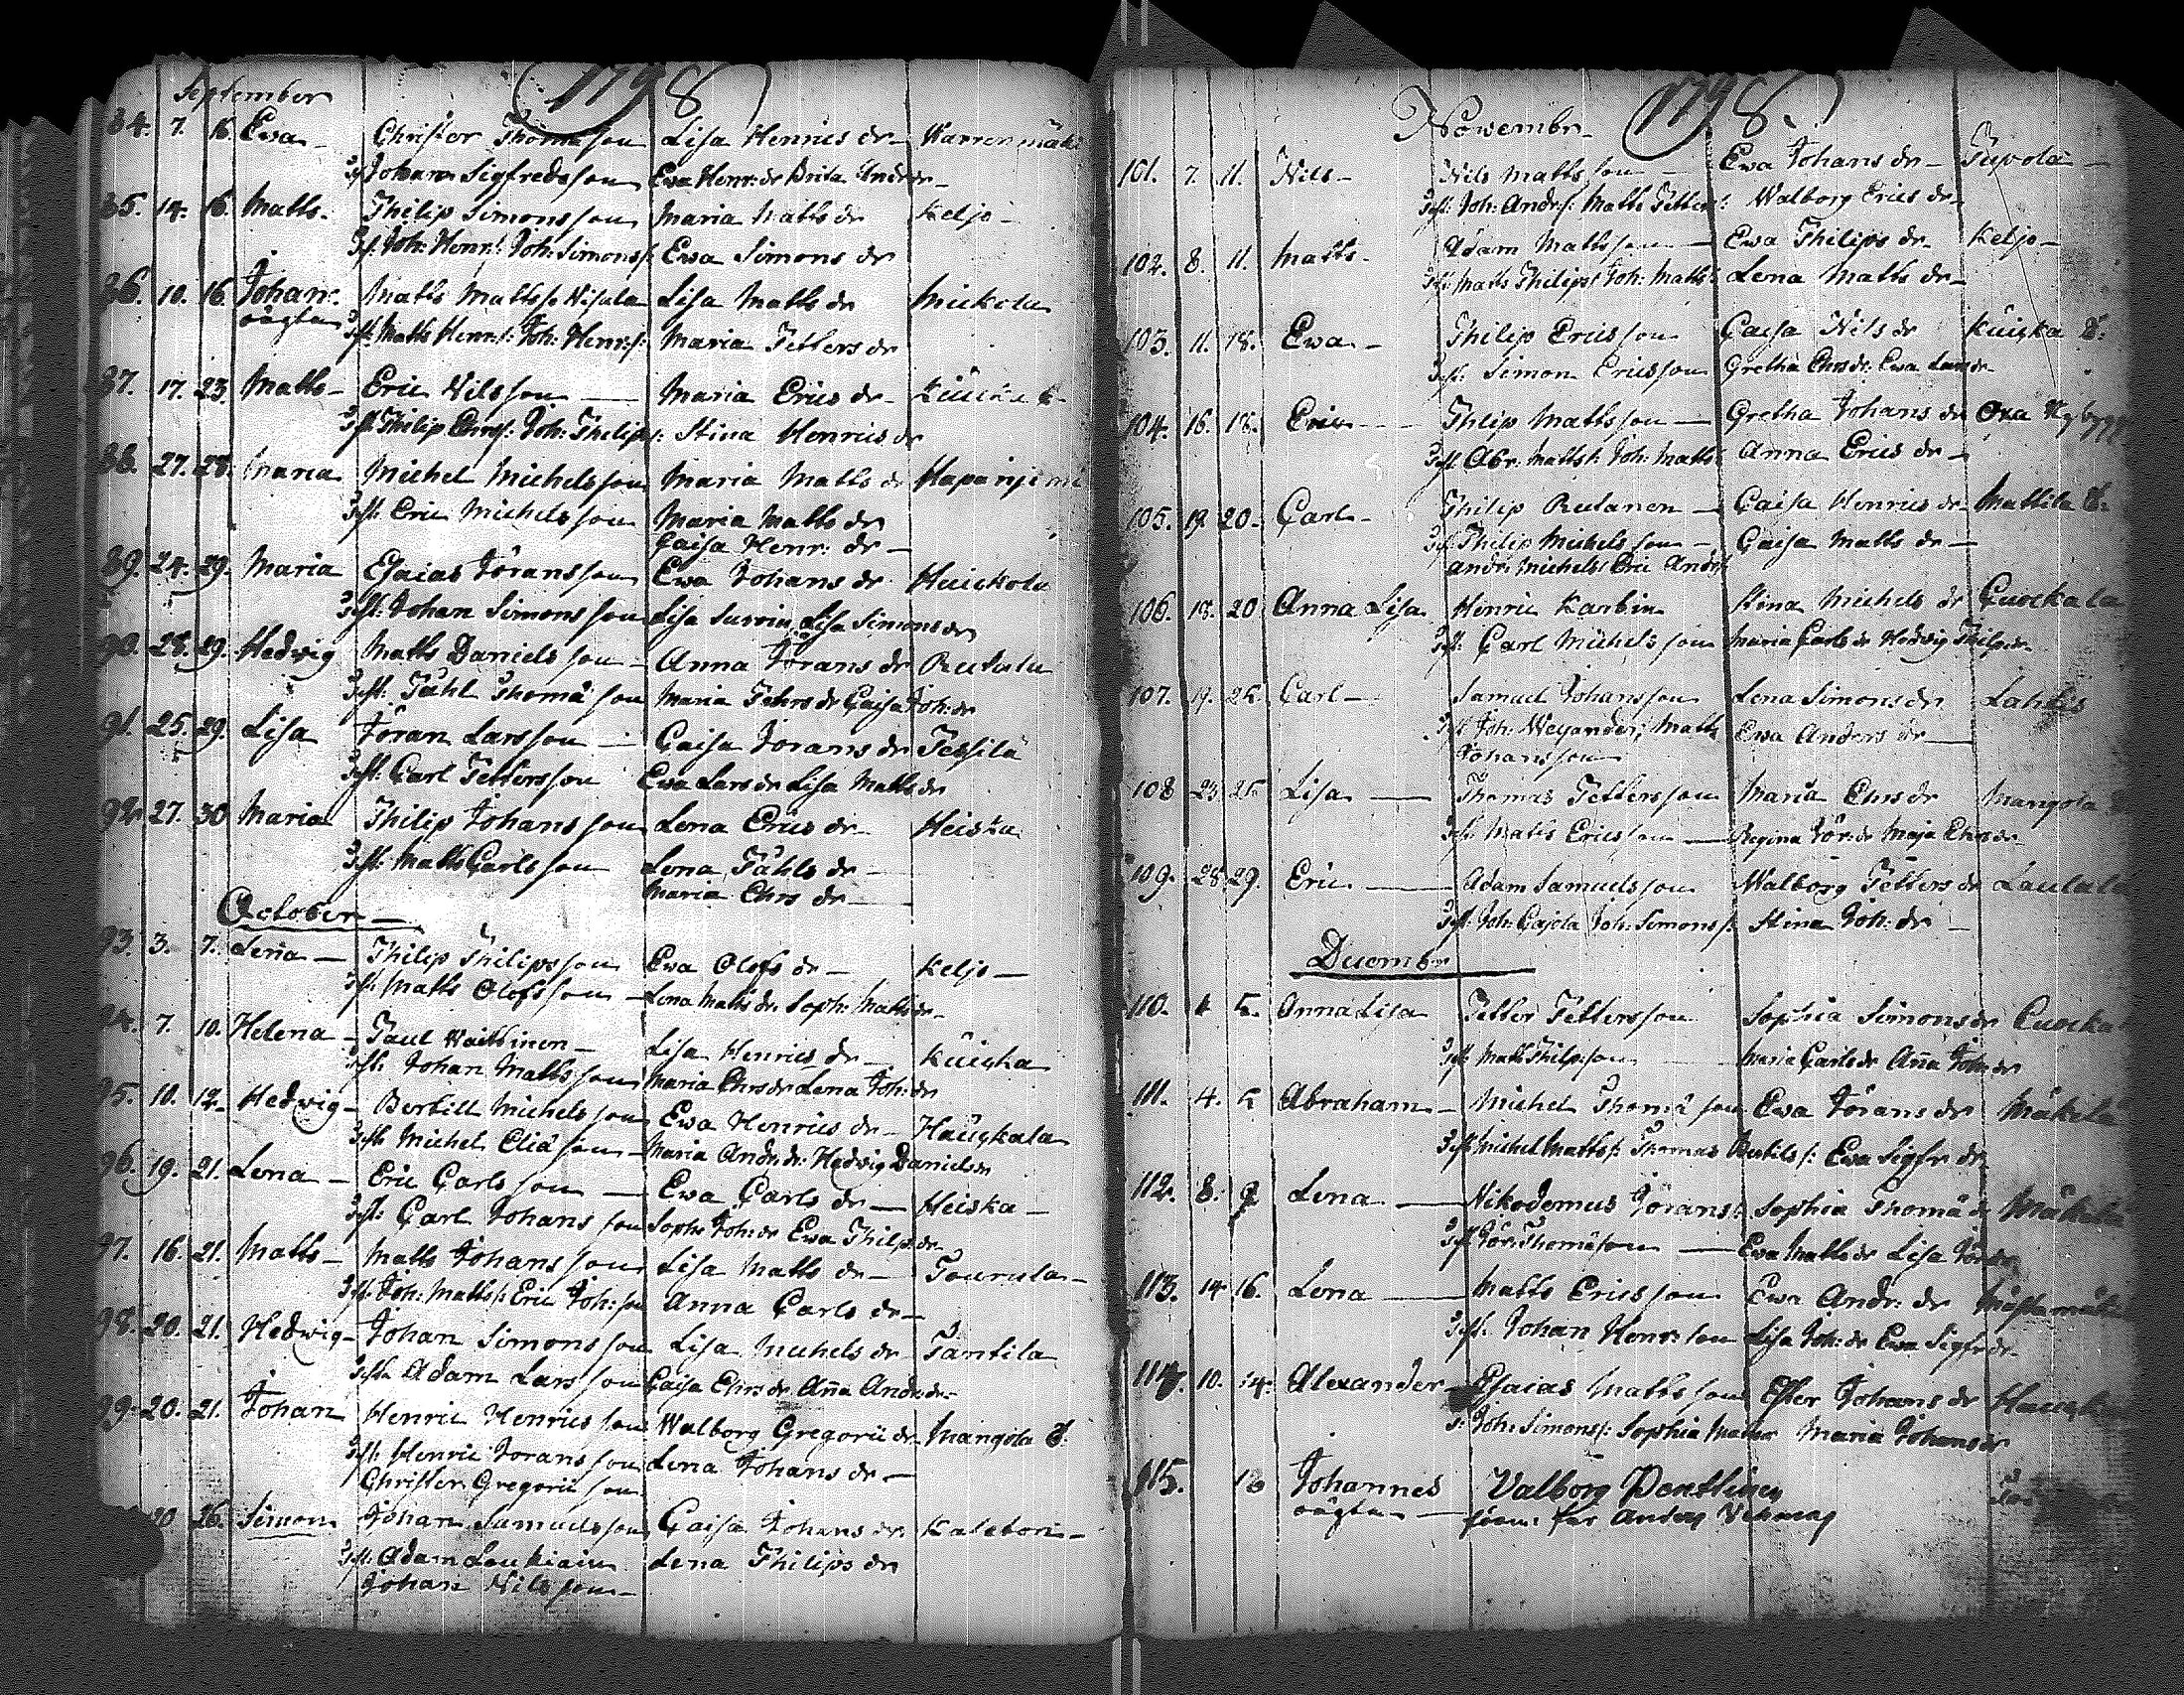 1798
September
84. 7. 16. Ewa Christer Thomasson Lisa Henrics dr Warrenmäki
Johan Sigfredsson Ewa Henr: dr Brita Andr dr
85. 14. 16. Matts Philip Simonsson Maria Matts dr Keljo
Joh: Henr: Joh: Simonss: Ewa Simons dr
86. 10. 16. Johan Matts Mattss: Lisa Matts dr Mickola
oägta Matts Henr:s: Joh: Henr:s: Maria Petters dr
87. 17. 23. Matts Eric Nilsson Maria Erics dr
Philip Ehrs: Joh: Philips: Stina Henrics dr
88. 27. 28. Maria Michel Michelsson Maria Matts dr Haponjemi
Eric Michelsson Maria Matts dr
Caisa Henr: dr
89. 24. 29. Maria Esaias Jöransson Ewa Johans dr Huickola
Johan Simonsson Lisa Surrin Lisa Simons dr
90. 28. 29. Hedwig Matts Danielsson Anna Jörans dr Rutula
Påhl Thomäson Maria Pehrs dr Caisa Joh: dr
91. 25. 29. Lisa Jöran Larsson Caisa Jörans dr Pessilä
Carl Pettersson Ewa Lars dr Lisa Matts dr
92. 27. 30 Maria Philip Johansson Lena Erics dr Heiska
Matts Carlsson Lena Påhls dr
Maria Ehrs dr
October
93. 3. 7. Lena Philip Philipsson Ewa Olofs dr Keljo
Matts Olofsson Lena Matts dr Soph: Matts dr
94. 7. 10. Helena Paul Waittinen Lisa Henrics dr Kuicka
Johan Mattsson Maria Ehrs dr Lena Joh: dr
95. 10. 12. Hedwig Bertill Michelsson Ewa Henrics dr Hauckala
Michel Eliäson Maria Andr: dr Hedwig Daniels dr
96. 19. 21. Lena Eric Carlsson Ewa Carls dr Heiska
Carl Johansson Soph: Joh: dr Ewa Philps dr
97. 16. 21. Matts Matts Johansson Lisa Matts dr Tourula
Joh: Matts: Eric Joh: son Anna Carls dr
98. 20. 21. Hedwig Johan Simonsson Lisa Michels dr Pantila
Adam Larsson Caisa Ehrs dr Anna Andr: dr
99. 20. 21. Johan Henric Henricsson Walborg Gregorii dr Mangola
Henric Joransson Lena Johans dr
Christer Gregorii son
20 26. Simon Johan Samuelsson Caisa Johans dr Kaleton
Adam Loukiain Lena Philips dr
Johan Nilsson
1798.
Nowembr
101. 7. 11. Nils Nils Mattsson Ewa Johans dr
Joh: Andr:s: Matts Petters: Walborg Erics dr
102. 8. 11. Matts Adam Mattsson Ewa Philips dr Keljo
Matts Philips: Joh: Matts: Lena Matts dr
103. 11. 18. Ewa Philip Ericsson Caisa Nils dr Kuicka
Simon Ericsson Gretha Ehrs dr: Ewa Lars dr
104. 16. 18. Eric Philip Mattsson Gretha Johans dr
Abr: Matts: Joh: Matts: Anna Erics dr
105. 19. 20. Carl Philip Rutanen Caisa Henrics dr Mattila
Philip Michelsson Caisa Matts dr
Andr: Michels: Eric Andrs:
106. 18. 20 Anna Lisa Henric Karbin Stina Michels dr Cuockala
Carl Michelsson Maria Carls dr Hedwig Philps dr
107. 19. 25. Carl Samuel Johansson Lena Simons dr Lahtis
Joh: Weyander, Matts Ewa Anders dr
Johansson
108 23. 25 Lisa Thomas Pettersson Maria Ehrs dr Mangola
Matts Ericsson Regina Jör: dr Maja Ehrs dr
109. 28. 29. Eric Adam Samuelsson Walborg Petters dr Laulala
Joh: Cajola Joh: Simons: Stina Joh: dr
Decembr
110. 1 5. Anna Lisa Petter Pettersson Sophia Simons dr Cuocka
Matts Philpsson Maria Carls dr Anna Joh: dr
111. 4. 5 Abraham Michel Thomäson Ewa Jörans dr Mäkilä
Michel Matts: Thomas Bertils: Ewa Sigfr: dr
112. 8. 9 Lena Nikodemus Jörans: Sophia Thomä dr Mäkilä
Jör: Thomäson Ewa Matts dr Lisa Jör: dr
113. 14 16. Lena Matts Ericsson Ewa Andr: dr
Johan Henr: son Lisa Joh: dr Ewa Sigfr: dr
114. 10. 14. Alexander Esaias Mattsson Ester Johans dr
Joh: Simons: Sophia Maria Johans dr
115. Johannes Valborg Penttinen
oägta far Anders